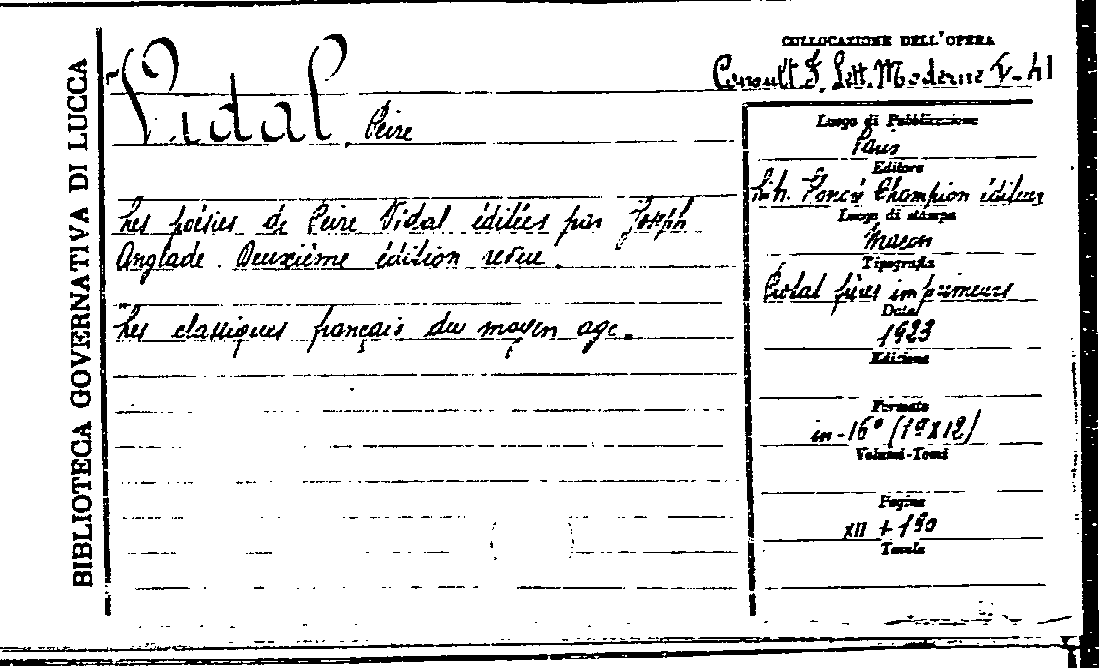 BIBLIOTECA GOVERNATIVA DI LUCCA
COLLOCAZIONE DELL'OPERA
Consult. F. Lett. Moderne V-41
Vidal, Peire
Les poésies de Peire Vidal éditées par Joseph
Anglade. Deuxième édition revue.
Les classiques français du moyen age.
Luogo di Pubblicazione
Paris
Editore
Lib. Champion éditeur
Luogo di stampa
Macon
Tipografia
Protat frères imprimeurs
Data
1923
Edizione
Formato
in-16° (19x12)
Volumi-Tomi
Pagine
XII + 190
Tavole